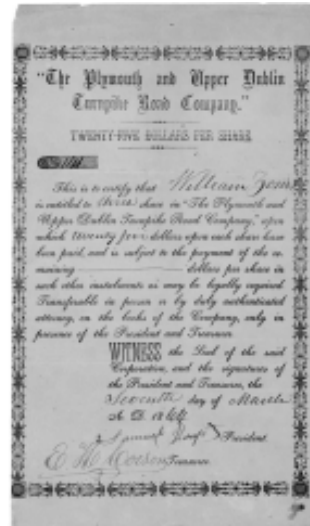 "The Plymouth and Upper Dublin
Turnpike Road Company."
TWENTY-FIVE DOLLARS PER SHARE
This is to certify that William
is entitled to share in "The Plymouth and
Upper Dublin Turnpike Road Company," upon
which twenty five dollars upon each share have
been paid, and is subject to the payment of the re-
maining dollars per share in
such other instalments as may be legally required
Transferable in person or by duly authenticated
attorney, on the books of the Company, only in
presence of the President and Treasurer.
WITNESS the Seal of the said
Corporation, and the signatures of
the President and Treasurer, the
Seventh day of March
A. D.
Samuel President
E H Treasurer